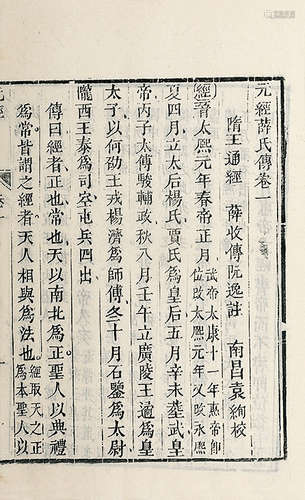 元經薛氏傳卷一
隋王通經 薛收傳阮逸註 南昌袁絢校
經晉太熙元年春帝正月武帝太康十一年熹帝卽位改太熙元年又改永熙
夏四月立太后楊氏賈氏為皇后五月辛未葬武皇
帝丙子太傅駿輔政秋八月壬午立廣陵王遹為皇
太子以何劭王戎楊濟為師傅冬十月石鑒為太尉
隴西王泰為司空屯兵四出
傳曰經者正也常也天以南北為正聖人以典禮
為常皆謂之經者天人相與為法也經取天之正為本聖人以